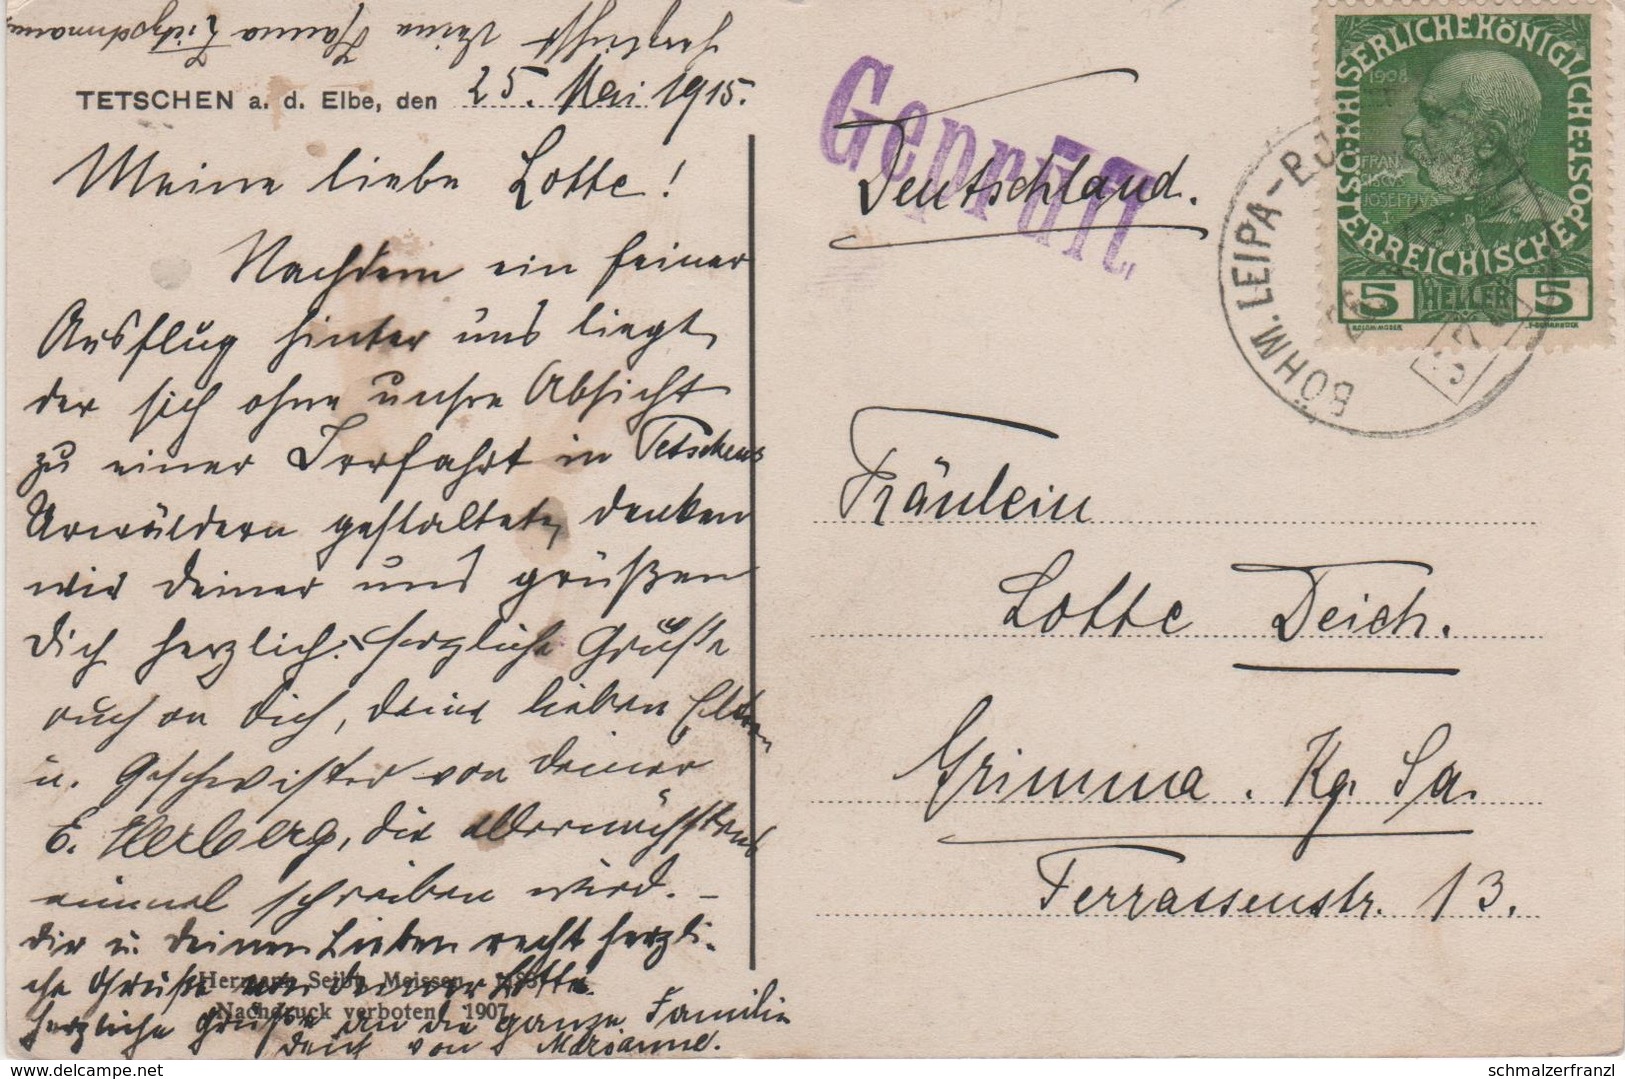 herzlichst Deine Hanna
TETSCHEN a. d. Elbe, den 25. Mai 1915.
Meine liebe Lotte!
Nachdem ein feiner
Ausflug hinter uns liegt,
der sich ohne unsre Absicht
zu einer Irrfahrt in Tetschens
Urwäldern gestaltete, denken
wir Deiner und grüßen
Dich herzlich. Herzliche Grüße
auch an Dich, Deine lieben Eltern
u. Geschwister von Deiner
E. Herberg, die allernächstens
einmal schreiben wird. –
Dir u. Deinen Lieben recht herzli-
che Grüße von Deiner Lotte.
Herzliche Grüße an die ganze Familie
Deich von Marianne.
Hermann Seibt, Meissen
Nachdruck verboten 1907
Geprüft
Deutschland.
Fräulein
Lotte Deich.
Grimma. Kg. Sa.
Terrassenstr. 13.
KAISERLICHEKÖNIGLICHE ÖSTERREICHISCHE POST
1908
FRAN
CISCVS
JOSEPHVS
I
5 HELLER 5
BÖHM. LEIPA-B
37
schmalzerfranzl